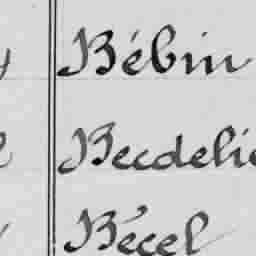 Bébin
Becdeliè
Bécel